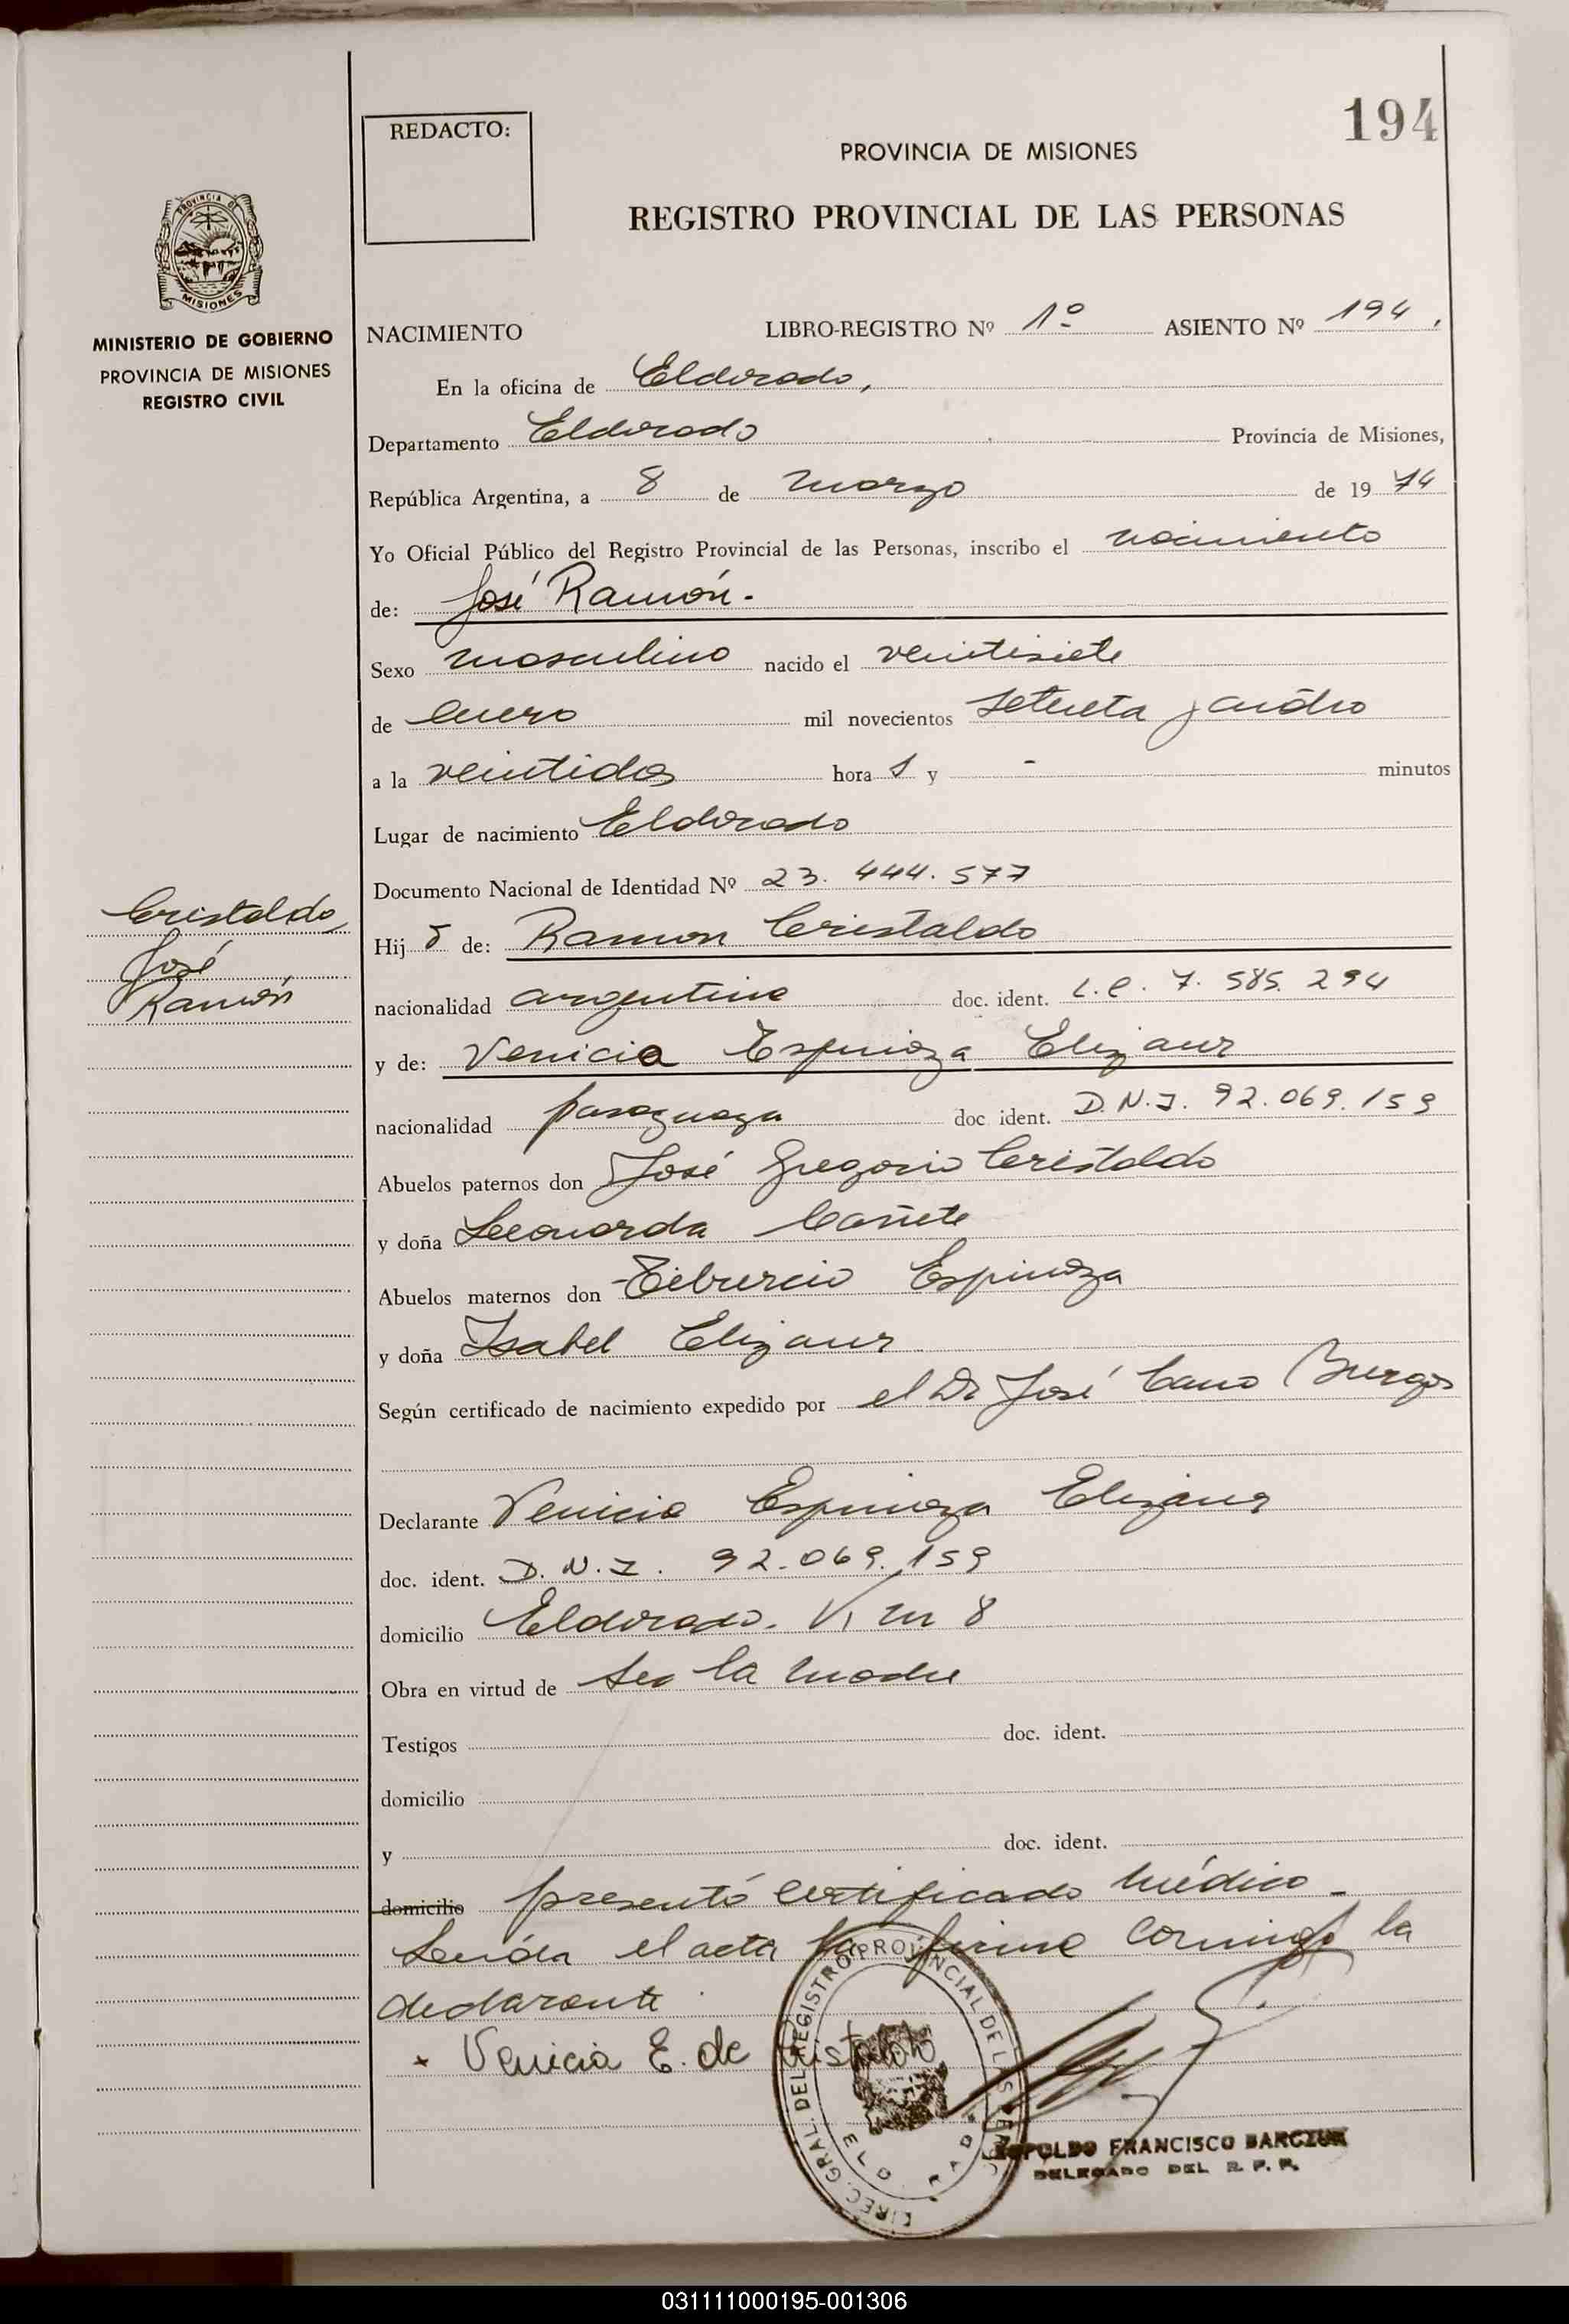 194
REDACTO:
PROVINCIA DE MISIONES
REGISTRO PROVINCIAL DE LAS PERSONAS
PROVINCIA DE
MISIONES
MINISTERIO DE GOBIERNO
PROVINCIA DE MISIONES
REGISTRO CIVIL
NACIMIENTO LIBRO-REGISTRO Nº 1º ASIENTO Nº 194.
En la oficina de Eldorado,
Departamento Eldorado Provincia de Misiones,
República Argentina, a 8 de marzo de 19 74
Yo Oficial Público del Registro Provincial de las Personas, inscribo el nacimiento
de: José Ramón.
Sexo masculino nacido el veintisiete
de enero mil novecientos setenta y cuatro
a la veintidos hora s y - minutos
Lugar de nacimiento Eldorado
Documento Nacional de Identidad Nº 23. 444. 577
Cristaldo,
José
Ramón
Hij o de: Ramon Cristaldo
nacionalidad argentina doc. ident. L.E. 7. 585. 294
y de: Venicia Espinoza Elizaur
nacionalidad paraguaya doc ident. D.N.I. 92.069.159
Abuelos paternos don José Gregorio Cristaldo
y doña Leonarda Cañete
Abuelos maternos don Tiburcio Espinoza
y doña Isabel Elizaur
Según certificado de nacimiento expedido por el Dr José Cano Burgos
Declarante Venicia Espinoza Elizaur
doc. ident. D.N.I. 92.069.159
domicilio Eldorado. Km 8
Obra en virtud de ser la madre
Testigos doc. ident.
domicilio
y doc. ident.
domicilio presentó certificado médico -
Leída el acta la firma conmigo la
declarante.
Venicia E. de Cristaldo
DIREC. GRAL. DEL REGISTRO PROVINCIAL DE LAS PERS
FRANCISCO BARCZUK
DELEGADO DEL R. P. P.
031111000195-001306